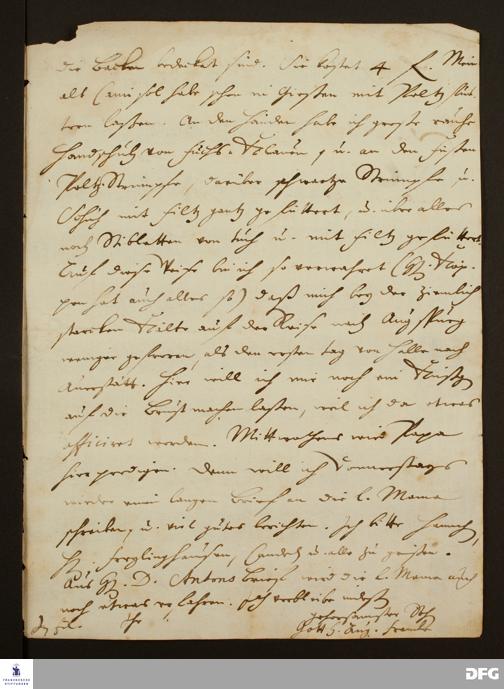 die Backen bedecket sind. Sie kostet 4 f. Mein
alt Camisol habe schon in Giessen mit Peltz füt-
tern lassen. An den Händen habe ich grosse rauhe
Handschuh von Fuchs-Klauen, u. an den Füssen
Peltz-Strümpfe, darüber schwartze Strümpfe u.
Schuh mit Filtz gantz gefüttert, u. über alles
noch Stibletten von Tuch u. mit Filtz gefüttert.
Auf diese Weise bin ich so verwahret (H. Köp-
pen hat auch alles so) daß mich bey der ziemlich
starcken Kälte auf der Reise nach Augspurg
weniger gefroren, als den ersten Tag von Halle nach
Auerstätt. Hier will ich mir noch ein
auf die Brust machen lassen, weil ich da etwas
afficiret worden. Mittwochens wird Papa
hier predigen. Dann will ich Donnerstags
wieder einen langen Brief an die l. Mama
schreiben, u. viel gutes berichten. Ich bitte
H. Freylinghausen, u. alle zu grüssen.
Aus H. D. Antons Brief wird die l. Mama auch
noch etwas erfahren. Ich verbleibe indeß
Ihr gehorsamster Sohn
Gotth. Aug. Francke
FRANCKESCHE STIFTUNGEN
DFG